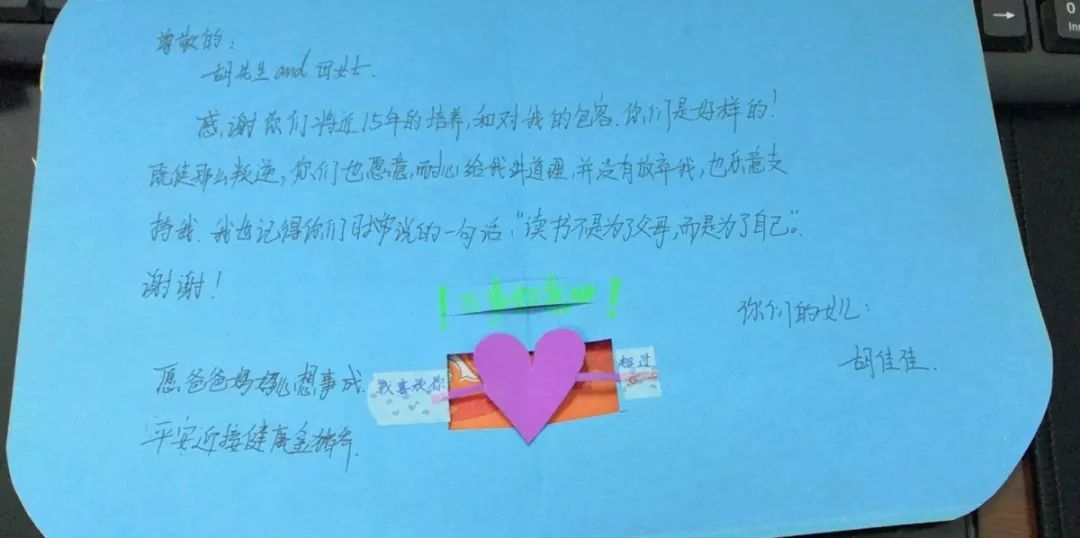 尊敬的:
胡先生and 田女士.
感谢你们将近15年的培养,和对我的包容.你们是好样的!
既使那么叛逆,你们也愿意,耐心给我讲道理,并没有放弃我,也乐意支
持我. 我也记得你们时常说的一句话:"读书不是为了父母,而是为了自己".
谢谢!
你们的女儿:
胡佳佳.
愿爸爸妈妈心想事成.
平安迎接健康金猪年.
我喜欢你
超过